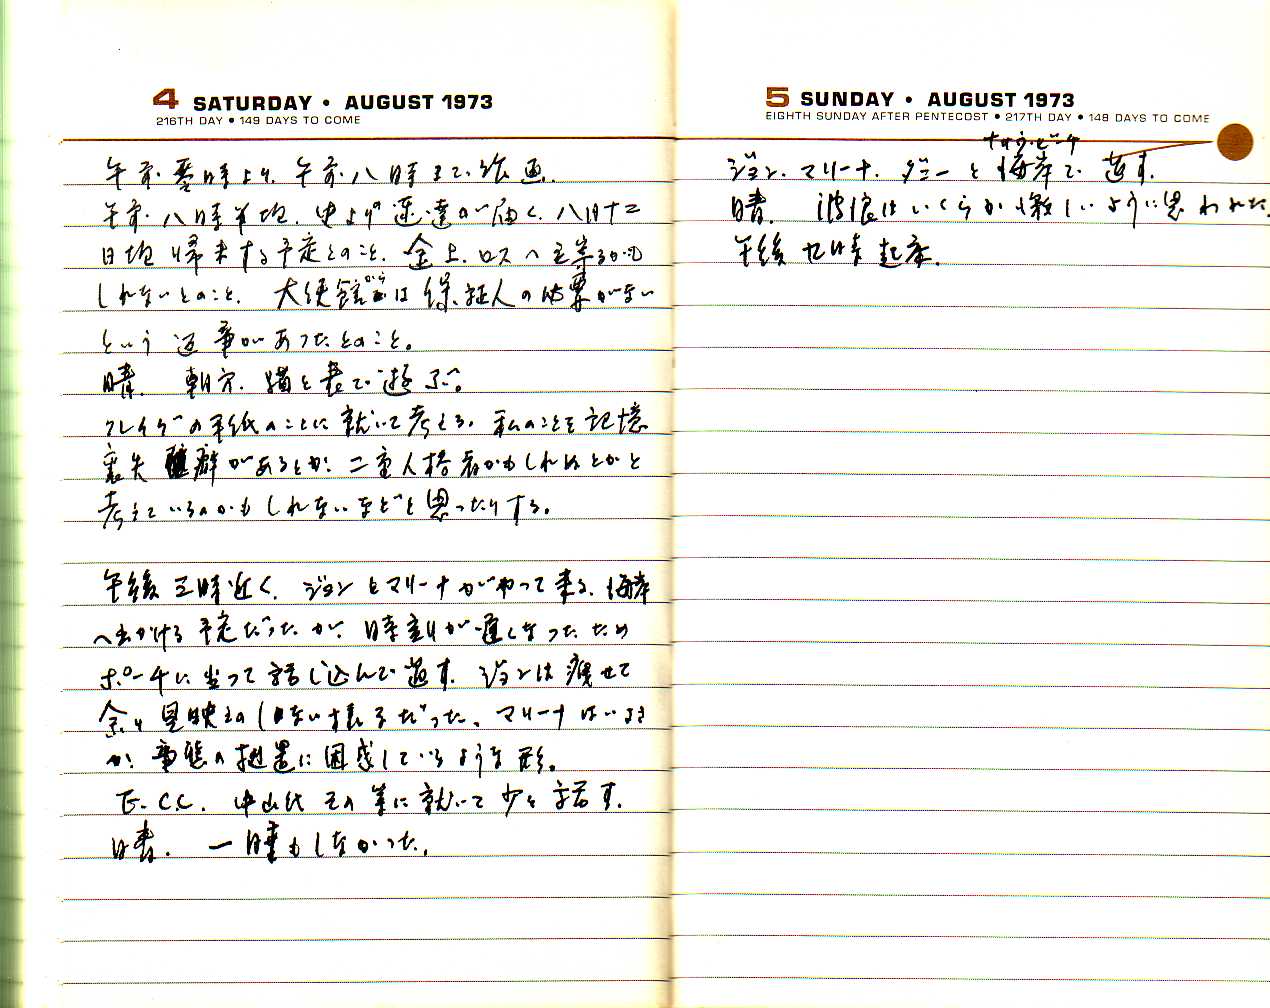 4 SATURDAY • AUGUST 1973
216TH DAY • 149 DAYS TO COME
午前零時より、午前八時まで絵画。
午前八時半頃、史より速達が届く、八月十二
日頃帰来する予定とのこと、金上、ロスへ立寄るかも
しれないとのこと、大使館からは保証人の必要がない
という返事があったとのこと。
晴。朝方、猫と表で遊ぶ。
クレイグの手紙のことに就いて考える。私のことを記憶
喪失癖があるとか、二重人格者かもしれぬとかと
考えているのかもしれないなどと思ったりする。
午後三時近く、ジョンとマリーナがやって来る、海岸
へ出かける予定だったが、時刻が遅くなったため
ポーチに坐って話し込んで過す。ジョンは痩せて
余り見映えのしない様子だった。マリーナはいささ
か、事態の措置に困惑しているような形。
E.C.C. 中山代その等に就いて少々話す。
晴。一睡もしなかった。
5 SUNDAY • AUGUST 1973
EIGHTH SUNDAY AFTER PENTECOST • 217TH DAY • 148 DAYS TO COME
ジョン、マリーナ、ダニーと海岸で過す。
晴。波浪はいくらか激しいように思われた。
午後七時起床。